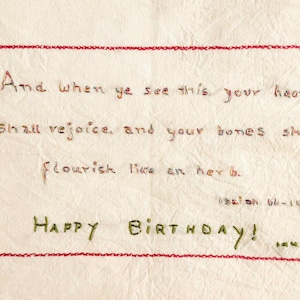 And when ye see this your hea
shall rejoice and your bones sh
flourish like an herb.
Isaiah 66-14
HAPPY BIRTHDAY!